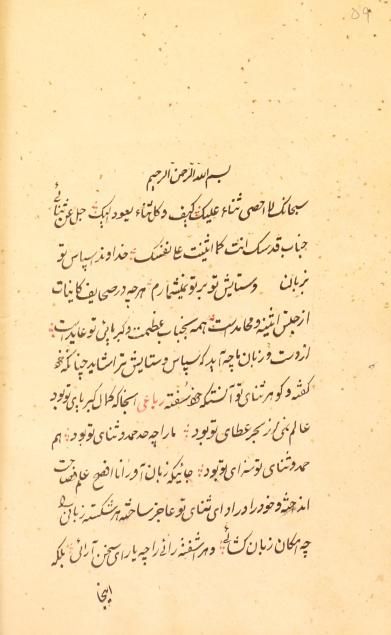 ۵۹
بسم الله الرحمن الرحیم
سبحانک لا احصی ثناء علیک کیف و کل ثناء یعود الیک جل عن ثنائی
جناب قدسک انت کما اثنیت علی نفسک خداوندا سپاس تو
بر زبان و ستایش تو بر تو نمیشماریم هرچه در صحایف کاینات
از جنس اثنیه و محامد است همه بجناب عظمت و کبریائی تو عاید است
از دست و زبان ما چه آید که سپاس و ستایش ترا شاید چنانکه خود
گفته و گوهر ثنای تو آنستکه خود سفته رباعی آنجا که کمال کبریای تو بود
عالم نمی از بحر عطای تو بود ما را چه حد حمد و ثنای تو بود هم
حمد و ثنای تو سزای تو بود جائیکه زبان آور انا افصح علم فصاحت
انداخته و خود را در ادای ثنای تو عاجز ساخته هر شکسته زبان را
چه امکان زبان کشائی و هر آشفته رائی را چه یارای سخن آرائی بلکه
اینجا